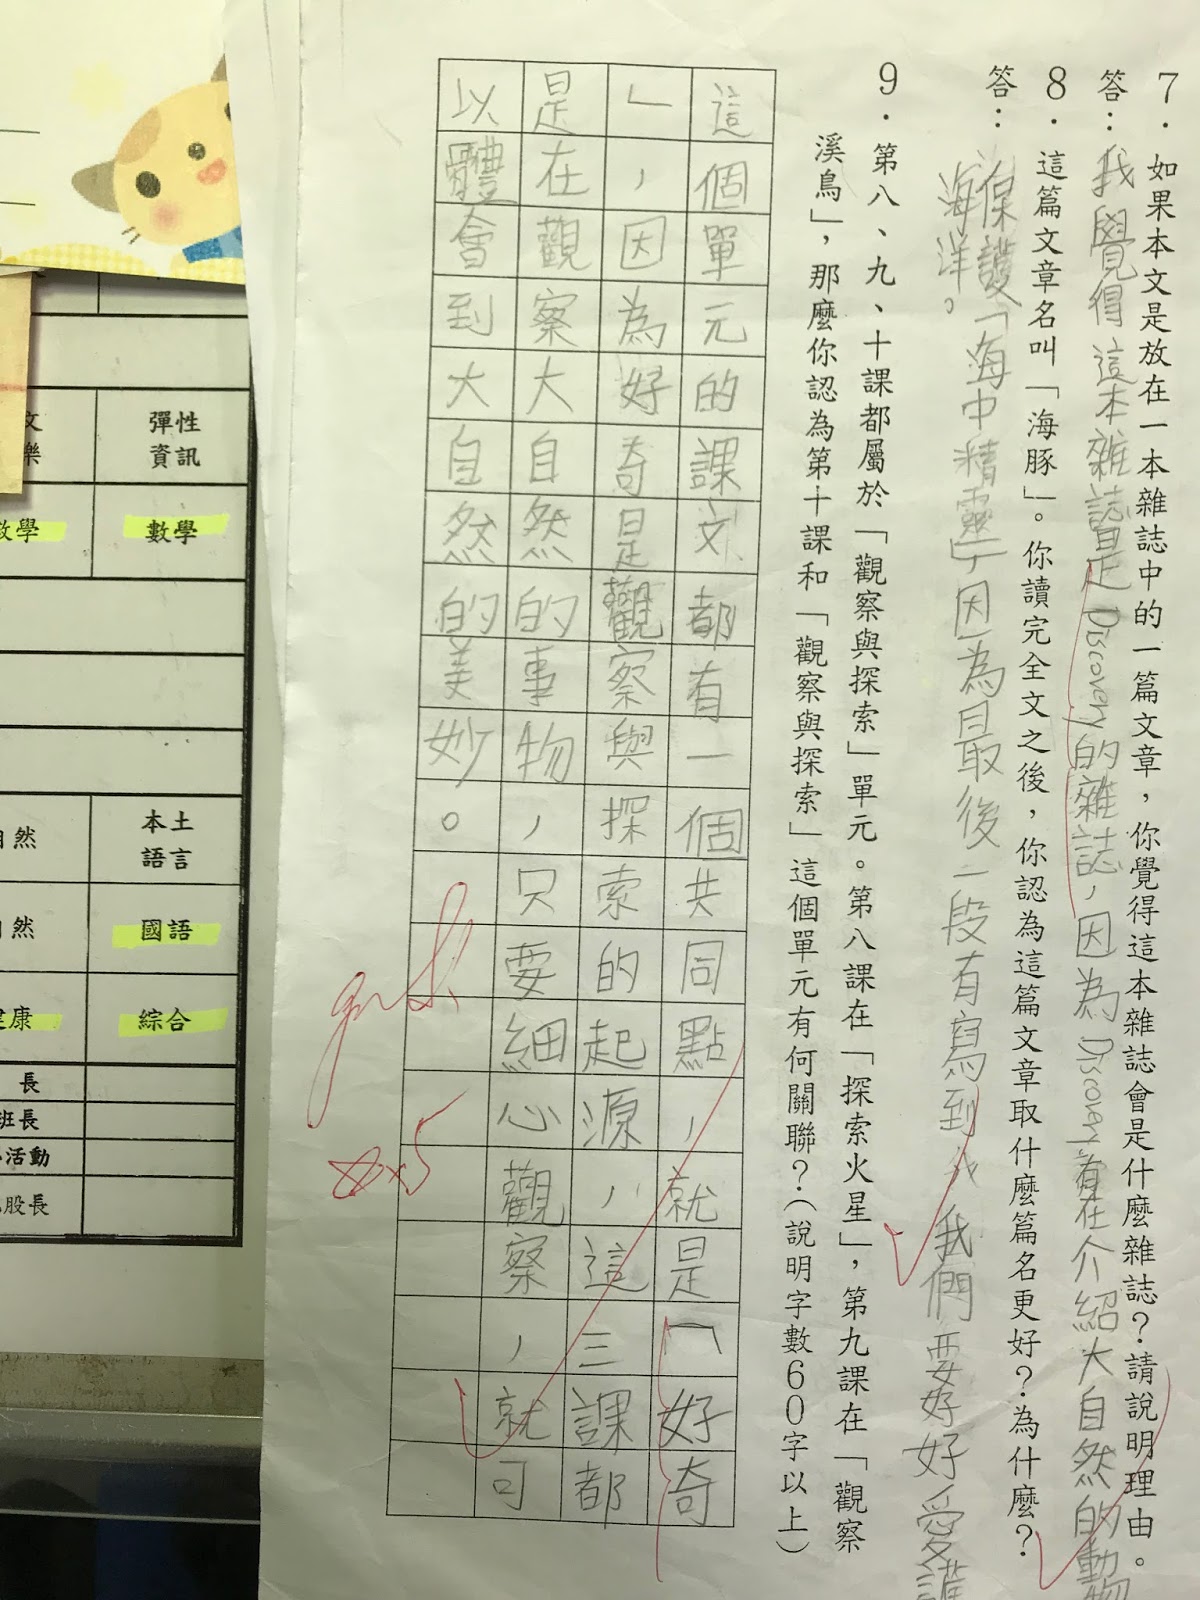 7．如果本文是放在一本雜誌中的一篇文章，你覺得這本雜誌會是什麼雜誌？請說明理由。
答：我覺得這本雜誌是Discovery的雜誌，因為Discovery有在介紹大自然的動物
8．這篇文章名叫「海豚」。你讀完全文之後，你認為這篇文章取什麼篇名更好？為什麼？
答：保護「海中精靈」，因為最後一段有寫到我們要好好愛護
海洋。
9．第八、九、十課都屬於「觀察與探索」單元。第八課在「探索火星」，第九課在「觀察
溪鳥」，那麼你認為第十課和「觀察與探索」這個單元有何關聯？（說明字數60字以上）
這個單元的課文都有一個共同點，就是「好奇
」，因為好奇是觀察與探索的起源，這三課都
是在觀察大自然的事物，只要細心觀察，就可
以體會到大自然的美妙。
good!
☆×5
彈性
資訊
數學
數學
本土
語言
自然
國語
自然
綜合
健康
長
班長
活動
股長